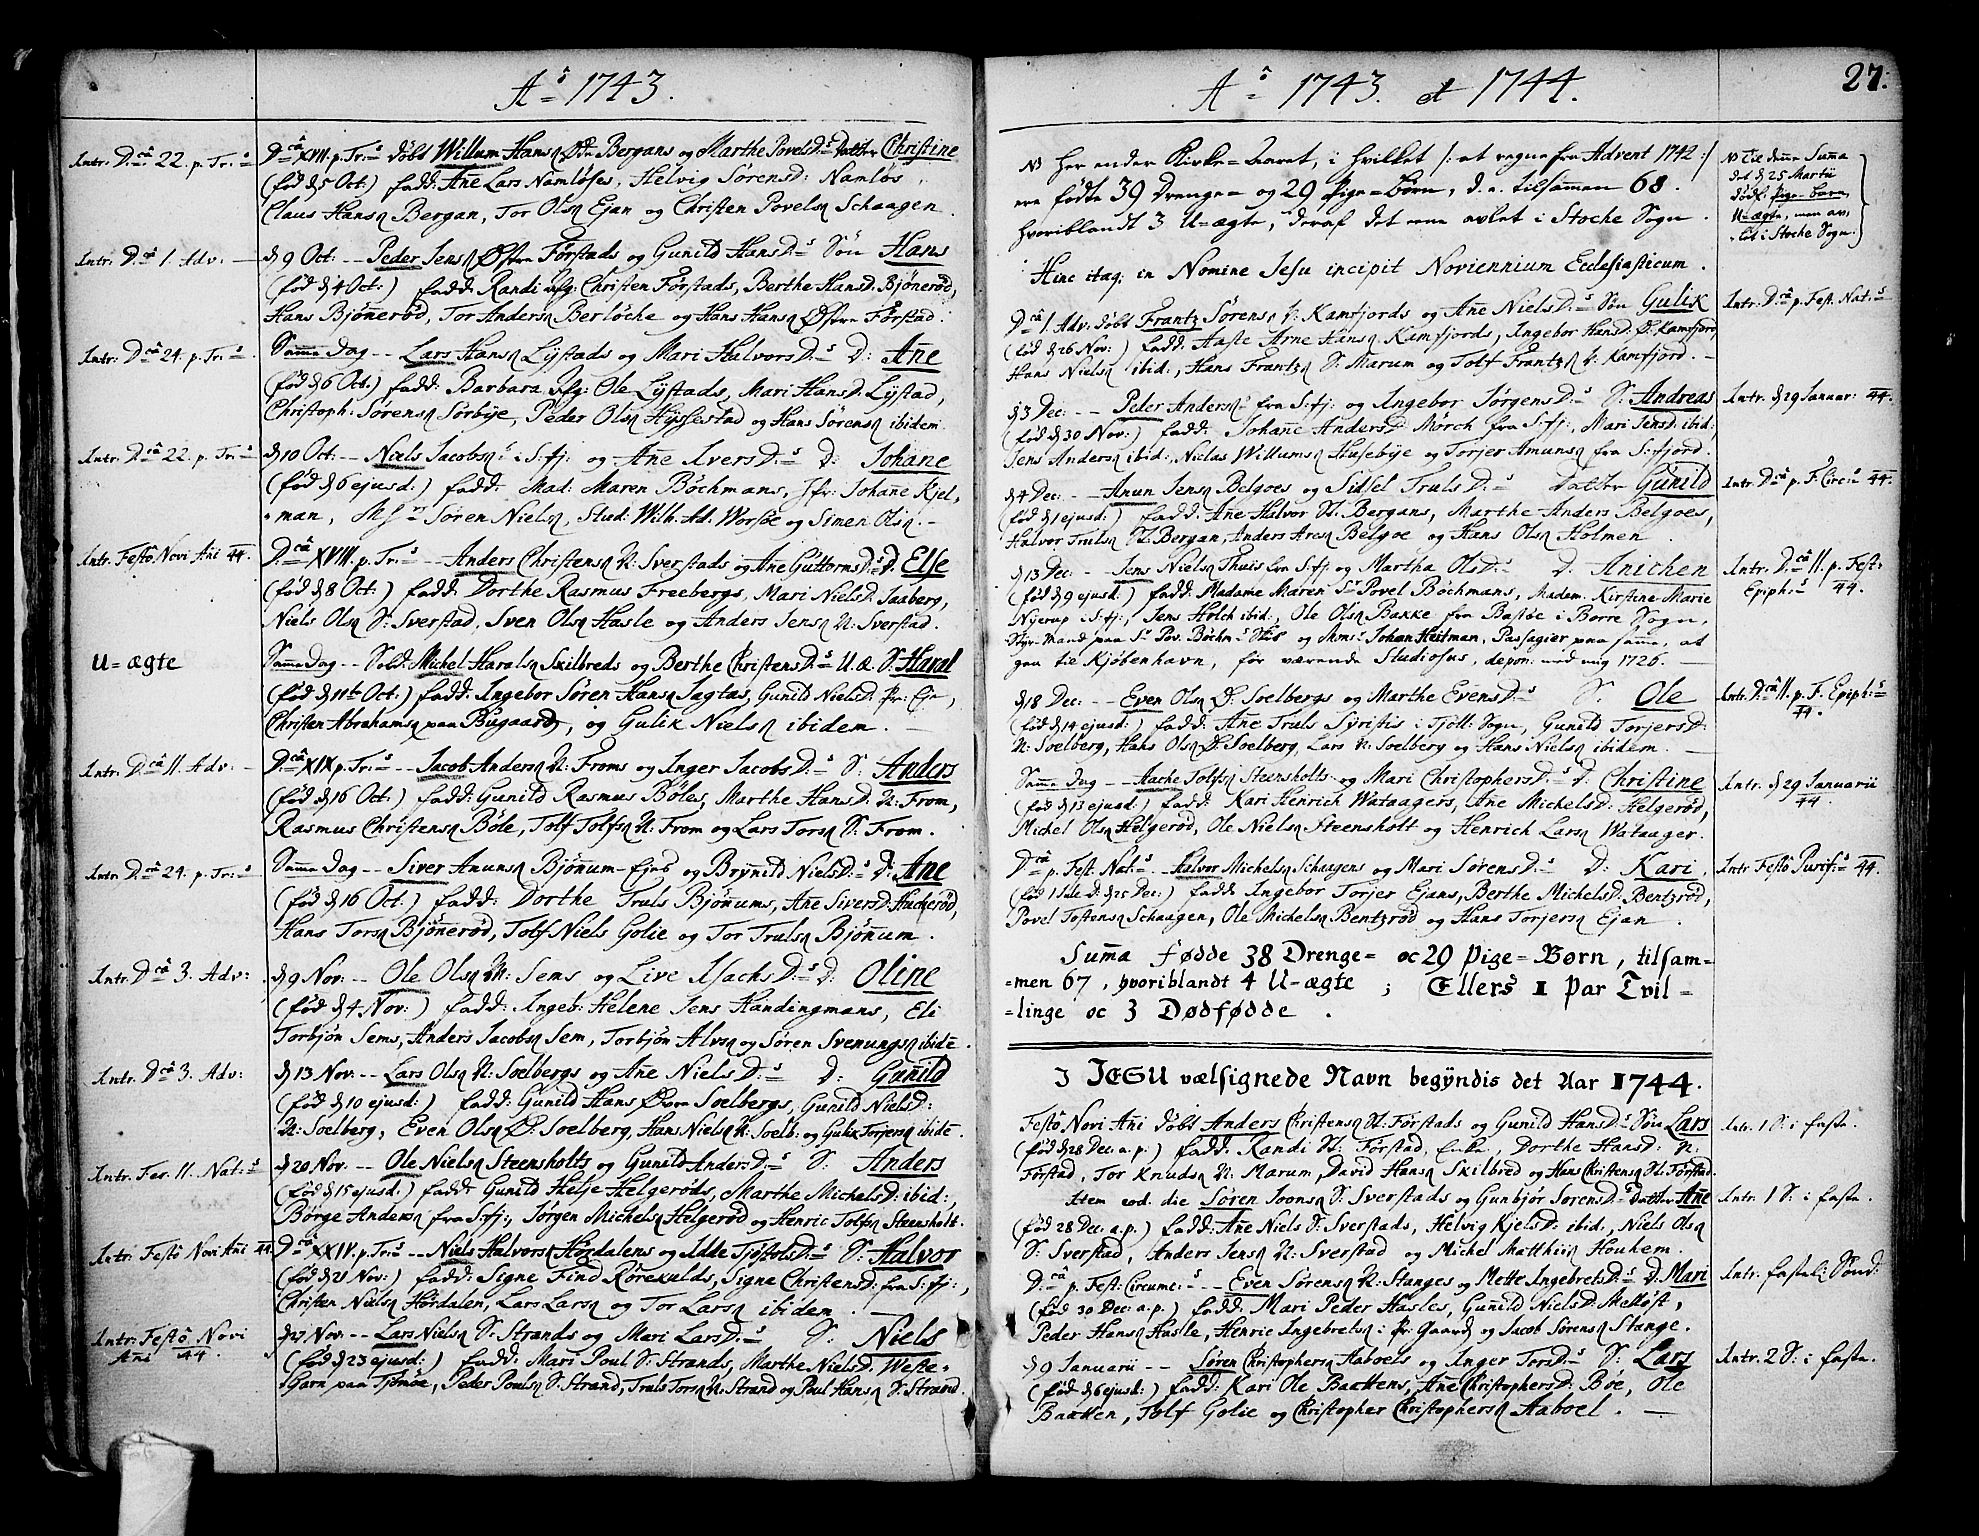 Aô= 1743.
Intr. D:câ 22. p. Tr:s
D:câ XVII. p. Tr:s døbt Willum Hansøn Øde Bergans og Marthe PovelsD:s Datter Christine
(fød d 5 Oct:) fadd: Añe Lars Namløses, Helvig SørensD: Namløs,
Claus Hansøn Bergan, Tor Olsøn Ejan og Christen Povelsøn Schaagen.
Intr. D:câ 1. Adv.
d 9 Oct: -- Peder Jensøn Østre Førstads og Gunild HansD:s Søn Hans
(fød d 4 Oct:) fadd: Randi Christen Førstads, Berthe HansD: Bjønerød,
Hans Bjønerød, Tor Andersøn Berløche og Hans Hansøn Østre Førstad.
Intr. D:câ 24. p. Tr:s
Sam̃e Dag -- Lars Hansøn Lÿstads og Mari HalvorsD:s D: Añe
(fød d 6 Oct.) fadd: Barbara Ole Lÿstads, Mari HansD: Lÿstad,
Christoph: Sørensøn Sørbÿe, Peder Olsøn Hÿssestad og Hans Sørensøn ibidem
Intr. D:câ 22. p. Tr:s
d 10 Oct. -- Niels Jacobsøn i S:fj: og Añe IversD:s D: Johañe
(fød d 6 ejusd:) fadd: Mad: Maren Bøchmans, Jfr: Johañe Kjel-
man, Søren Nielsøn, Stud: Wilh: Ad. Worsøe og Simen Olsøn.
Intr. Festô Novi Añi 44.
D:câ XVIII. p. Tr:s -- Anders Christensøn N: Sverstads og Añe GuttormsD:s D: Else
(fød d 8 Oct.) fadd: Dorthe Rasmus Freebergs, Mari NielsD: Jaaberg,
Niels Olsøn S: Sverstad, Sven Olsøn Hasle og Anders Jensøn N: Sverstad.
U=ægte
Sam̃e Dag -- Sold: Michel Haralsøn Skilbreds og Berthe ChristensD:s U. æ. S: Haral
(fød d 11te Oct:) fadd: Ingebor Søren Hansøn Jagtas, Gunild NielsD:
Christen Abrahamsøn paa Bugaarden, og Gulik Nielsøn ibidem.
Intr. D:câ II. Adv.
D:câ XIX p. Tr:s -- Jacob Andersøn N: Froms og Inger JacobsD:s S: Anders
(fød d 16 Oct.) fadd: Gunild Rasmus Bøles, Marthe HansD: N: From,
Rasmus Christensøn Bøle, Tolf Tolfsøn N: From og Lars Torsøn S: From.
Intr. D:câ 24. p. Tr:s
Sam̃e Dag -- Siver Anunsøn Bjøñum-Ejes og Brÿnild NielsD:s D: Añe
(fød d 16 Oct.) fadd: Dorthe Truls Bjøñums, Añe SiversD: Hucherød,
Hans Torsøn Bjønerød, Tolf Niels Golie og Tor Trulsøn Bjøñum.
Intr. D:câ 3. Adv:
d 9 Nov. -- Ole Olsøn N: Sems og Live IsachsD:s D: Oline
(fød d 4 Nov:) fadd: Ingeb: Helene Jens Handingmans, Eli
Torbjøn Sems, Anders Jacobsøn Sem, Torbjøn Alvsøn og Søren Svenungsøn ibidẽ.
Intr. D:câ 3. Adv:
d 13 Nov. -- Lars Olsøn N: Soelbergs og Añe NielsD:s D: Guñild
(fød d 10 ejusd:) fadd: Gunild Hans Øvre Soelbergs, Gunild NielsD:
N: Soelberg, Even Olsøn Ø: Soelberg, Hans Nielsøn N: Soelb: og Gulik Torjersøn ibidẽ.
Intr. Fer. II. Nat:s
d 20 Nov. -- Ole Nielsøn Steensholts og Gunild AndersD:s S: Anders
(fød d 15 ejusd:) fadd: Gunild Helje Helgerøds, Marthe MichelsD: ibid:,
Børge Andersøn fra S:fj:, Jørgen Michelsøn Helgerød og Henric Tolfsøn Steensholt.
Intr: Festô Novi Añi 44.
D:câ XXIV. p. Tr:s -- Niels Halvorsøn Hørdalens og Idde TjøstolsD:s S: Halvor
(fød d 21 Nov:) fadd: Signe Find Rørekulds, Signe ChristensD: fra S:fj:,
Christen Nielsøn Hørdalen, Lars Larsøn og Tor Larsøn ibidem.
Intr: Festô Novi
Añi 44.
d 27 Nov. -- Lars Nielsøn S: Strands og Mari LarsD:s S: Niels
(fød d 23 ejusd:) fadd: Mari Poul S: Strands, Marthe NielsD: Weste-
hiern paa Tjømøe, Peder Poulsøn S: Strand, Truls Torsøn N: Strand og Poul Hansøn S: Strand.
Aô= 1743. et 1744.
27.
NB Her ender Kirke-Aaret, i hvilket /: at regne fra Advent 1742 :/
ere fødte 39 Drenge= og 29 Pige=Børn, d. e. tilsam̃en 68.
hvoriblandt 3 U-ægte, deraf det ene avlet i Stoche Sogn.
NB Til denne Suma
det d 25 Martii
dødf. Pige-Barn
U-ægte, men av-
let i Stoche Sogn.
Hinc itaq; in Nomine Jesu incipit Noviennium Ecclesiasticum.
Intr: D:câ p. Fest. Nat:s
D:câ 1. Adv. døbt Frantz Sørensøn V: Kamfjords og Añe NielsD:s Søn Gulik
(fød d 26 Nov:) fadd: Aaste Arne Hansøn Kamfjords, Ingebor HansD: Ø: Kamfjord,
Hans Nielsøn ibid:, Hans Frantzøn S: Marum og Tolf Frantzøn V: Kamfjord.
Intr. d 29 Januar: 44.
d 3 Dec: -- Peder Andersøn fra S:fj: og Ingebor JørgensD:s S: Andreas
(fød d 30 Nov:) fadd: Johañe AndersD: Mørch fra S:fj:, Mari JensD: ibid:,
Jens Andersøn ibid:, Niclas Willumsøn Husebÿe og Torjer Amunsøn fra S:fjord.
Intr. D:câ p. F. Circ:s 44.
d 4 Dec: -- Anun Jensøn Belgoes og Sidsel TrulsD:s Datter Guñild
(fød d 1 ejusd:) fadd: Añe Halvor N. Bergans, Marthe Anders Belgoes,
Halvor Trulsøn N. Bergan, Anders Aresøn Belgoe og Hans Olsøn Holmen.
Intr. D:câ II. p. Fest:
Epiph:s 44.
d 13 Dec: -- Jens Nielsøn Thuis fra S:fj: og Martha OlsD:s D: Anichen
(fød d 9 ejusd:) fadd: Madame Maren Sr Povel Bøchmans, Madem. Kirstine-Marie
Nÿerup i S:fj:, Jens Holch ibid:, Ole Olsøn Bakke fra Bastøe i Borre Sogn,
Styr-Mand paa Sr Pov. Bøchm:s Skib og Mons: Johan Heitman, Passagier paa sam̃e, at
gaa til Kjøbenhavn, før værende Studiosus, depon: med mig 1726.
Intr. D:câ II. p. F. Epiph:s
44.
d 18 Dec: -- Even Olsøn Ø: Soelbergs og Marthe EvensD:s S: Ole
(fød d 14 ejusd:) fadd: Añe Truls Syristis i Tjøll: Sogn, Gunild TorjersD:
N: Soelberg, Hans Olsøn Ø: Soelberg, Lars N: Soelberg og Hans Nielsøn ibidem.
Intr. d 29 Januarii
44.
Sam̃e Dag -- Aache Tolfsøn Steensholts og Mari ChristophersD:s D: Christine
(fød d 13 ejusd:) fadd: Kari Henrich Wataagers, Añe MichelsD: Helgerød,
Michel Olsøn Helgerød, Ole Nielsøn Steensholt og Henrich Larsøn Wataager.
Intr Festô Purif:s 44.
D:câ p. Fest. Nat:s -- Halvor Michelsøn Schaagens og Mari SørensD:s D: Kari.
(fød d 25 Dec:) fadd: Ingebor Torjer Ejans, Berthe MichelsD: Bentzrød,
Povel Tostensøn Schaagen, Ole Michelsøn Bentzrød og Hans Torjersøn Ejan.
Sum̃a fødde 38 Drenge= oc 29 Pige=Børn, tilsam-
=men 67, hvoriblandt 4 U-ægte; Ellers 1 Par Tvil-
=linge oc 3 Dødfødde.
I JESU vælsignede Navn begÿndis det Aar 1744.
Intr. 1 S: i faste.
Festô Novi Añi døbt Anders Christensøn N. Førstads og Gunild HansD:s Søn Lars
(fød d 28 Dec: a. p.) fadd: Randi N: Førstad, Enke, Dorthe HansD: N:
Førstad, Tor Knudsøn N: Marum, David Hansøn Skilbred og Hans Christensøn N: Førstad.
Intr. 1 S: i faste.
Item eod. die Søren Joonsøn S: Sverstads og Gunbjør SørensD:s Datter Añe
(fød 28 Dec: a.p.) fadd: Añe Niels S: Sverstads, Helvig KjelsD: ibid:, Niels Olsøn
S: Sverstad, Anders Jensøn N: Sverstad og Michel Matthisøn Houhem.
Intr. fastel: Sønd:
D:câ p. Fest: Circumc:s -- Even Sørensøn N: Stanges og Mette IngebretsD:s D: Mari
(fød 30 Dec: a.p.) fadd: Mari Peder Hasles, Guñild NielsD: Melløst,
Peder Hansøn Hasle, Henric Ingebretsøn i Pr: Gaarden og Jacob Sørensøn Stange.
Intr. 2 S: i faste.
d 9 Januarii -- Søren Christophersøn Aaboels og Inger TorsD:s S: Lars
(fød d 6 ejusd:) fadd: Kari Ole Bakkens, Añe ChristophersD: Bøe, Ole
Bakken, Tolf Golie og Christopher Christophersøn Aaboel.